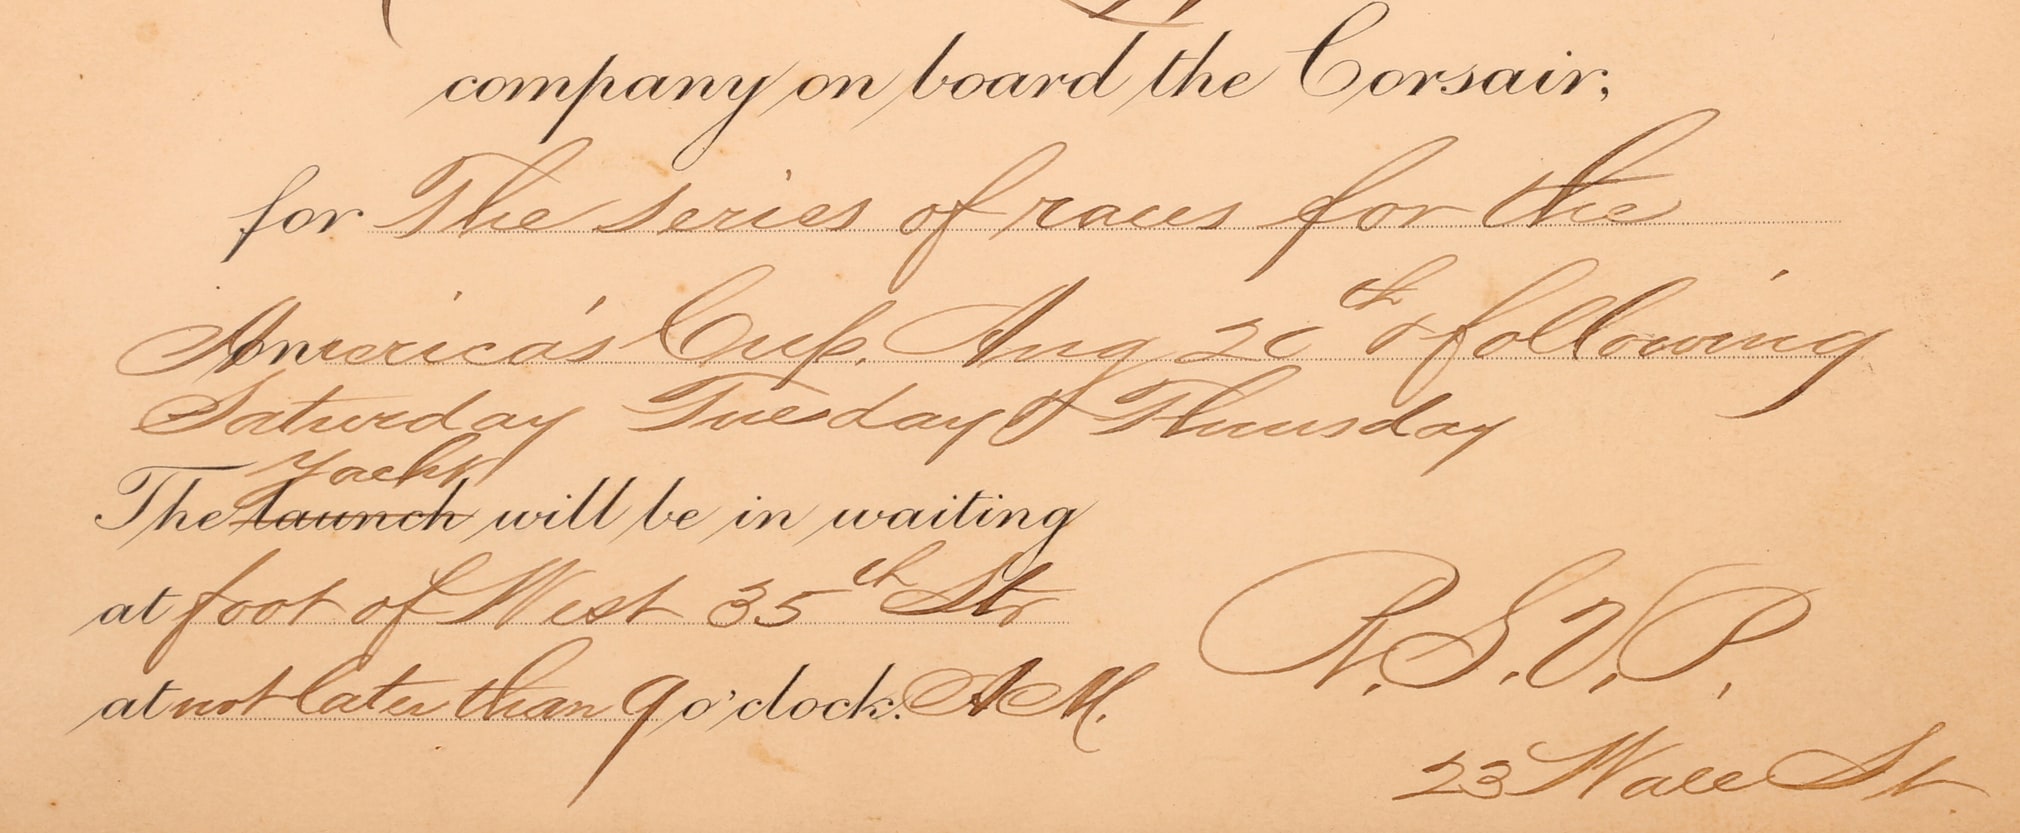 company on board the Corsair,
for The series of races for the
America's Cup. Aug 20th & following
Saturday Tuesday & Thursday
Yacht
The launch will be in waiting
at foot of West 35th Str
at not later than 9 o'clock. A M.
R. S. V. P.
23 Wall St.